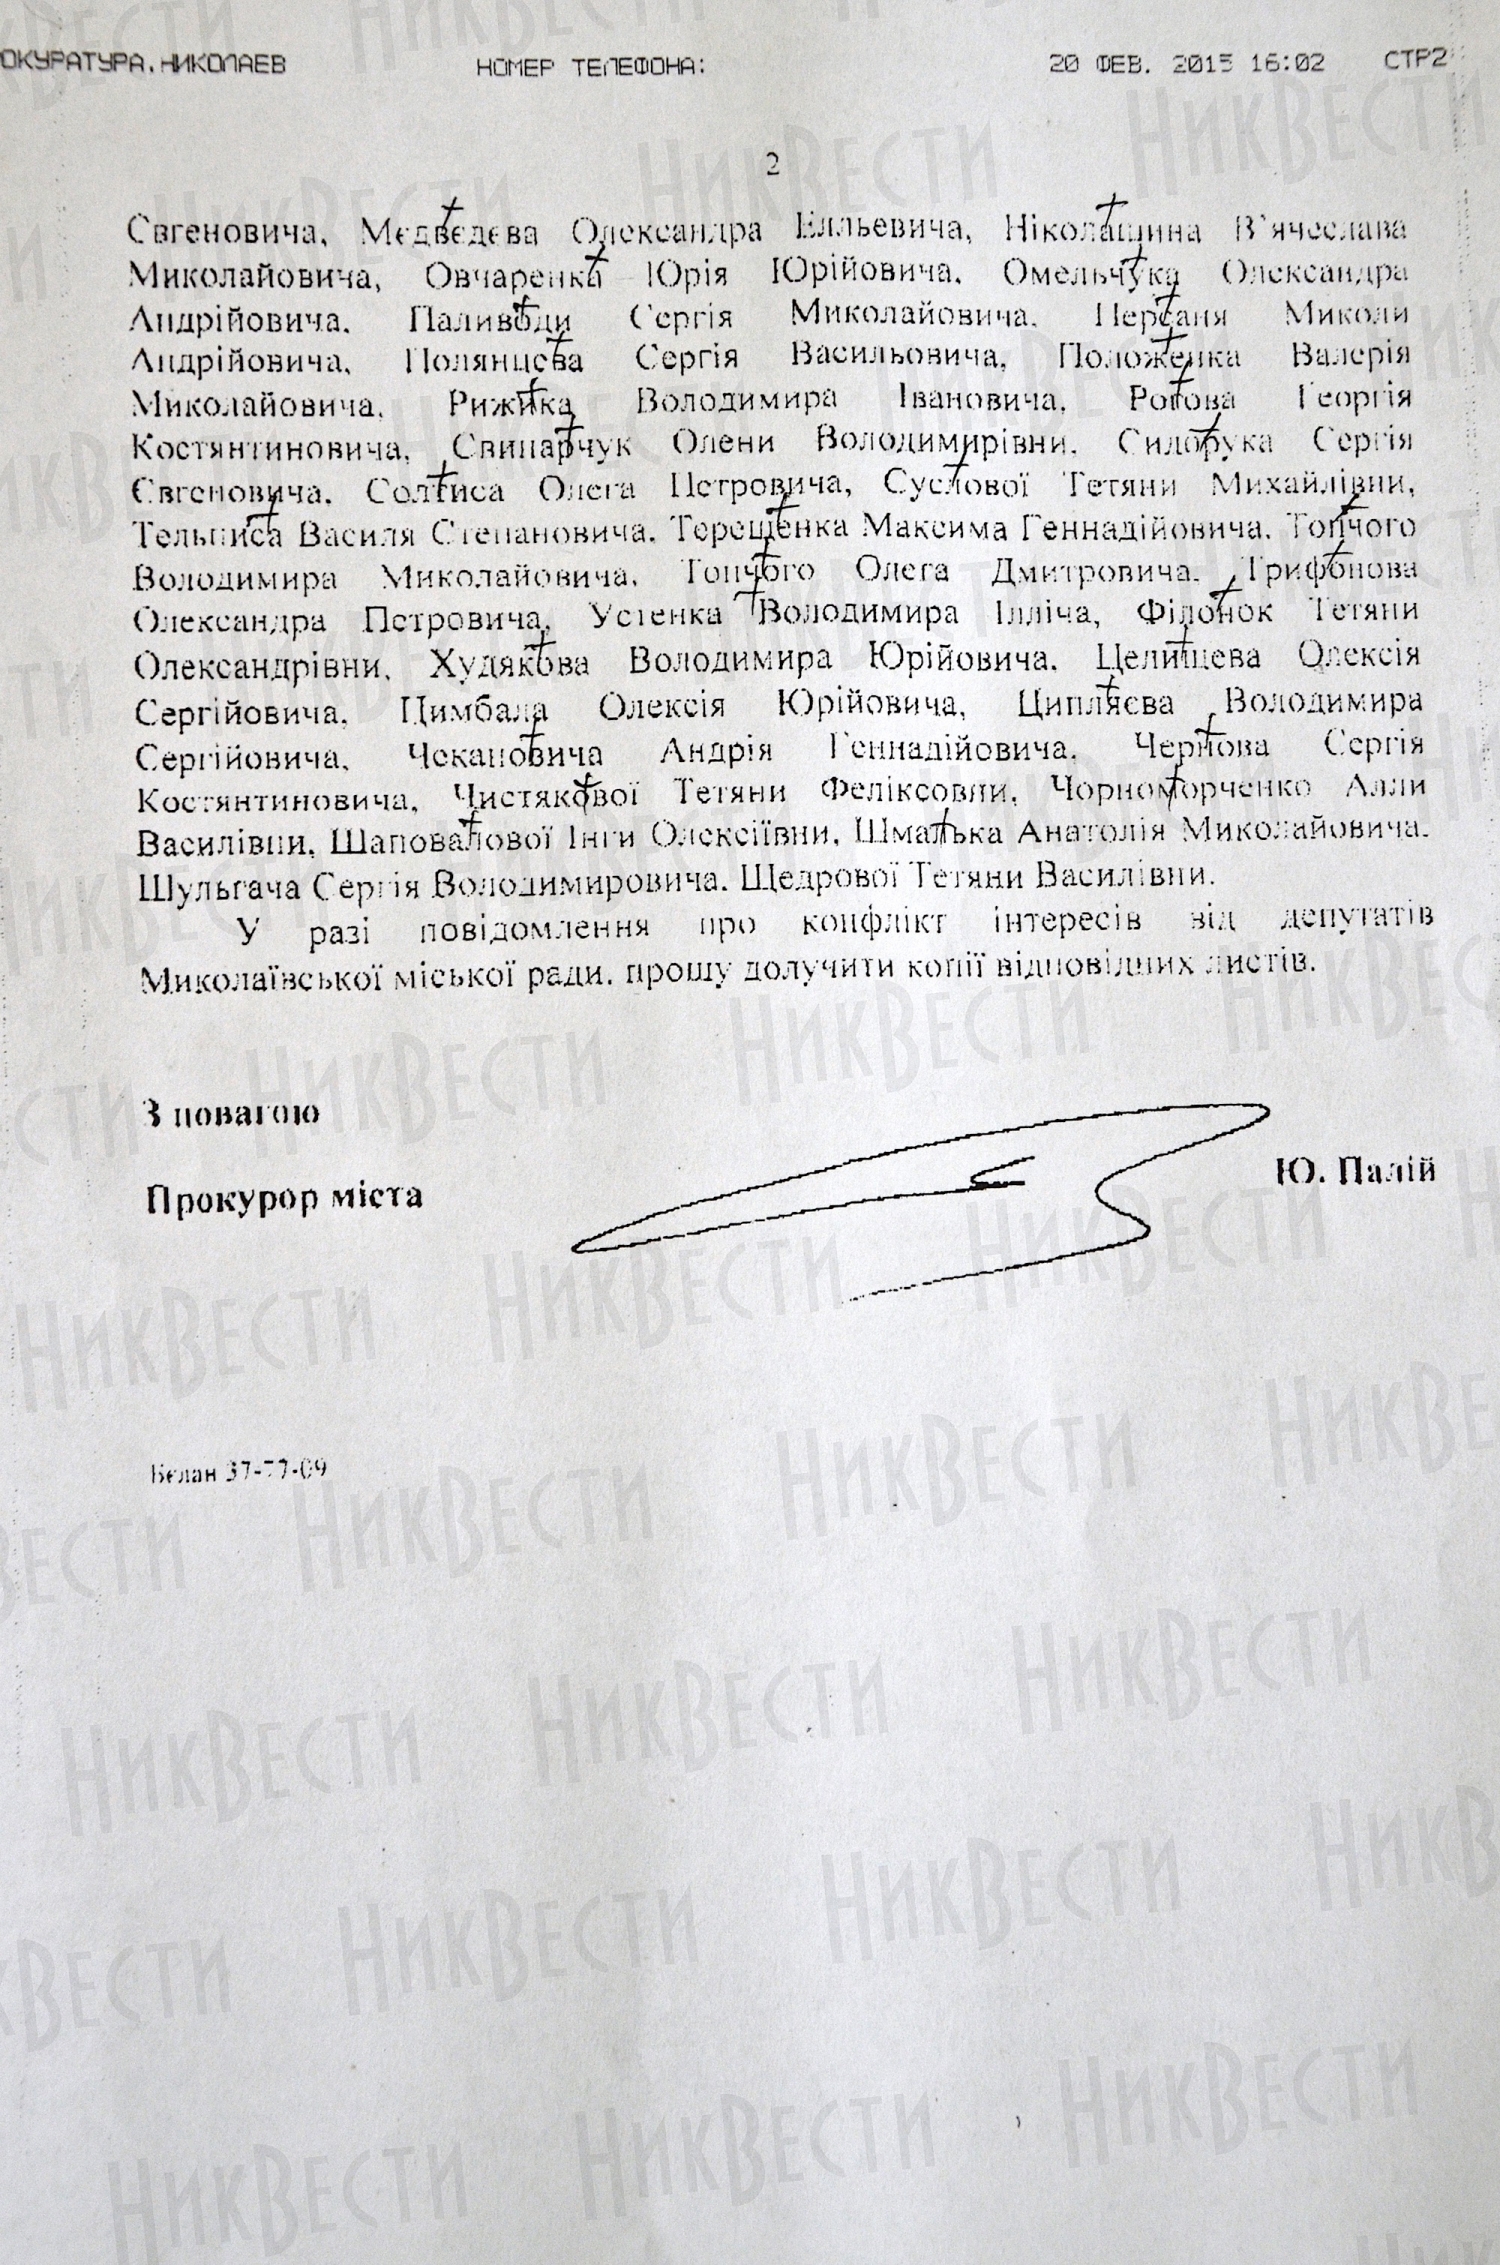 ОКУРАТУРА.НИКОЛАЕВ НОМЕР ТЕЛЕФОНА: 20 ФЕВ. 2015 16:02 СТР2
2
Євгеновича, Медведєва Олександра Елльевича, Ніколащина В'ячеслава
Миколайовича, Овчаренка Юрія Юрійовича, Омельчука Олександра
Андрійовича, Паливоди Сергія Миколайовича, Персаня Миколи
Андрійовича, Полянцева Сергія Васильовича, Положенка Валерія
Миколайовича, Рижика Володимира Івановича, Ротова Георгія
Костянтиновича, Свинарчук Олени Володимирівни, Сидорука Сергія
Євгеновича, Солтиса Олега Петровича, Суслової Тетяни Михайлівни,
Тельписа Василя Степановича, Терещенка Максима Геннадійовича, Топчого
Володимира Миколайовича, Топчого Олега Дмитровича, Трифонова
Олександра Петровича, Устенка Володимира Ілліча, Філонок Тетяни
Олександрівни, Худякова Володимира Юрійовича, Целищева Олексія
Сергійовича, Цимбала Олексія Юрійовича, Ципляєва Володимира
Сергійовича, Чекановича Андрія Геннадійовича, Чернова Сергія
Костянтиновича, Чистякової Тетяни Феліксовни, Чорноморченко Алли
Василівни, Шаповалової Інги Олексіївни, Шманька Анатолія Миколайовича,
Шульгача Сергія Володимировича, Щедрової Тетяни Василівни.
У разі повідомлення про конфлікт інтересів від депутатів
Миколаївської міської ради, прошу долучити копії відповідних листів.
З повагою
Прокурор міста Ю. Палій
Белан 37-77-09
НикВести